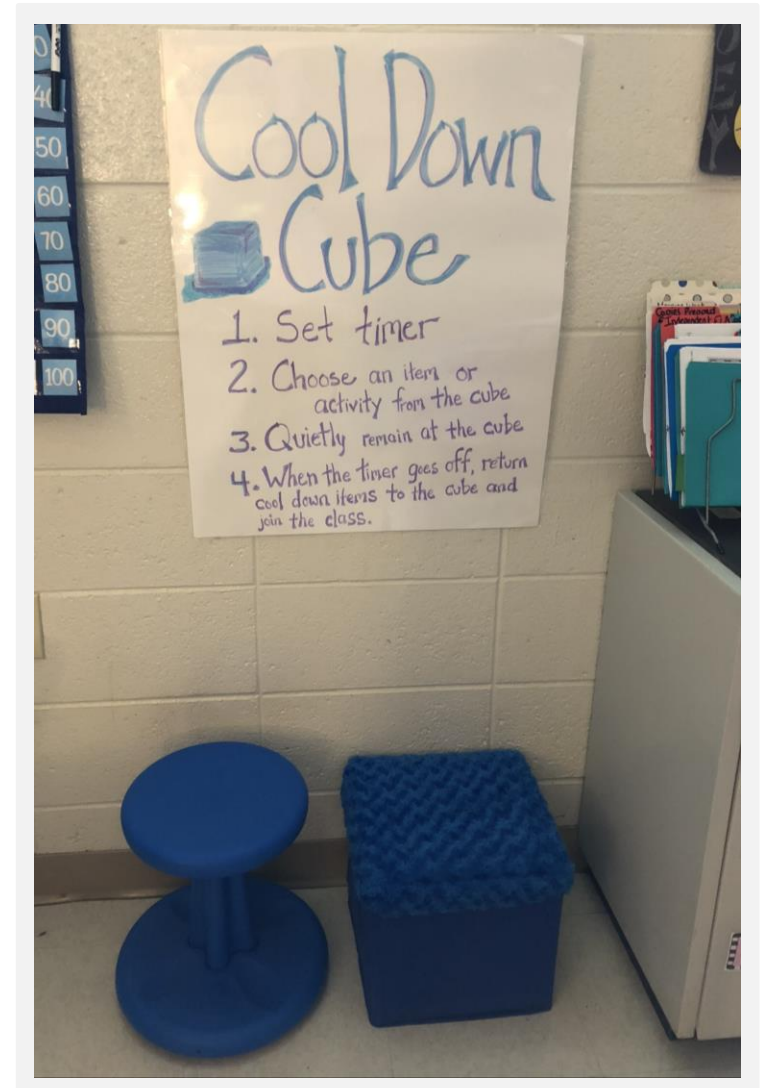 Cool Down
Cube
1. Set timer
2. Choose an item or
activity from the cube
3. Quietly remain at the cube
4. When the timer goes off, return
cool down items to the cube and
join the class.
40
50
60
70
80
90
100